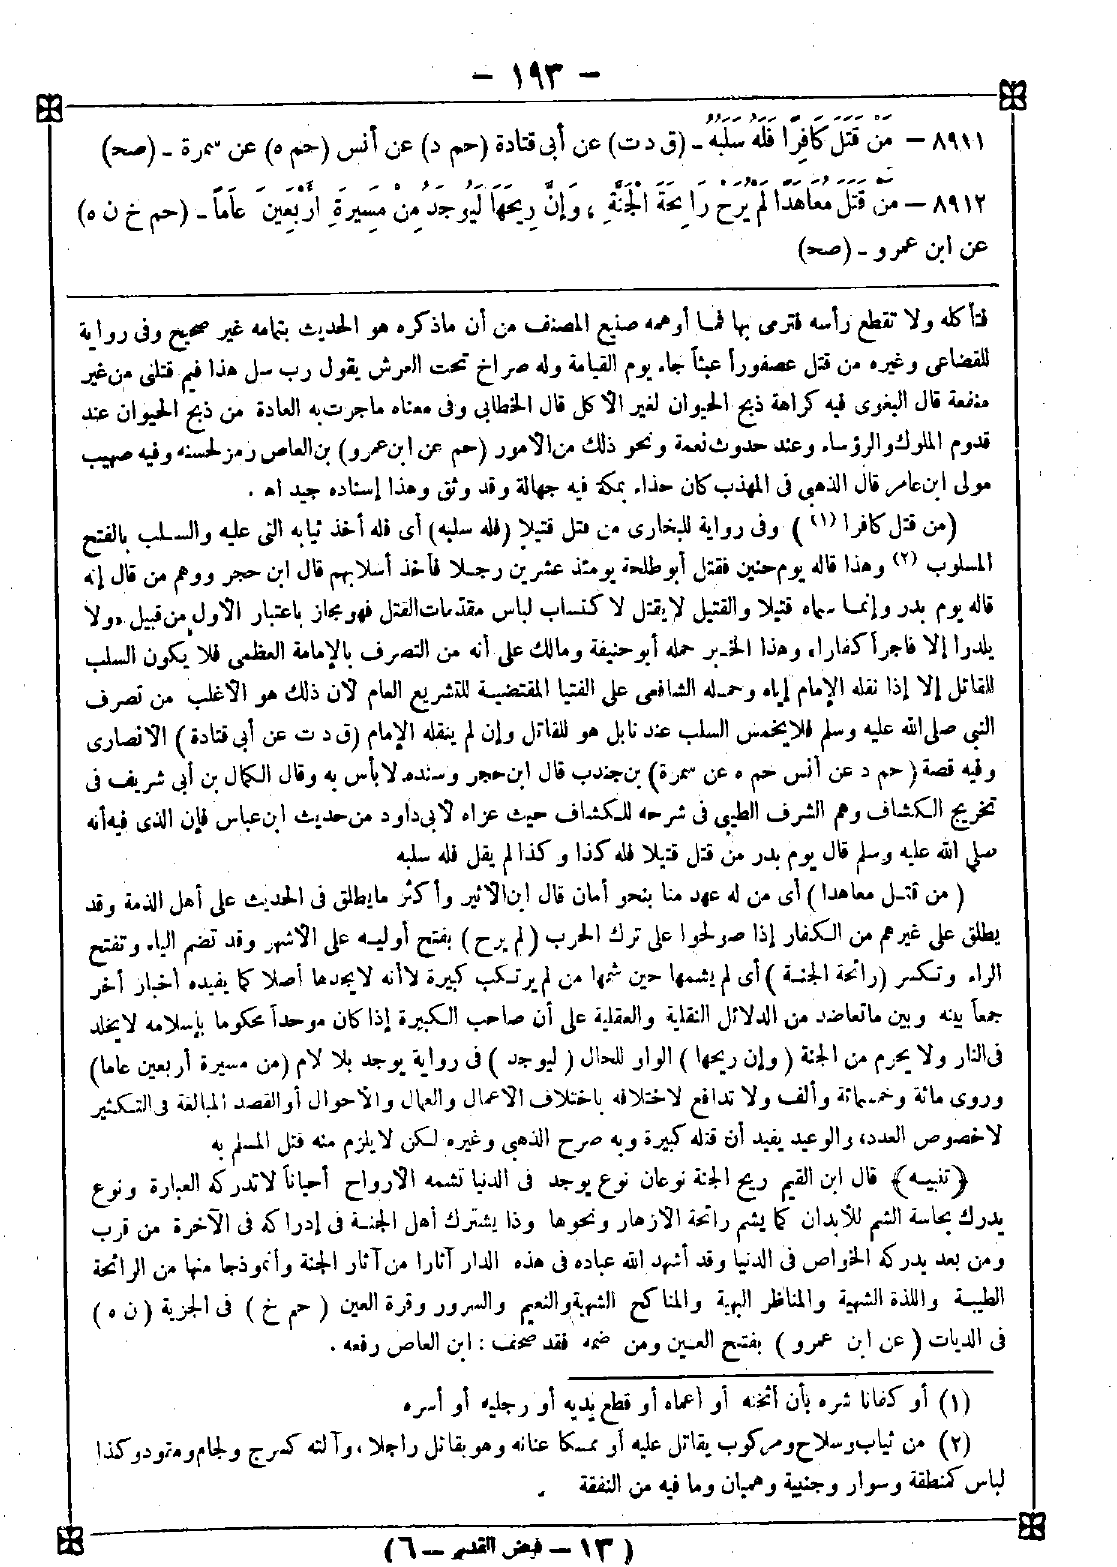 - ١٩٣ -
٨٩١١ - مَنْ قَتَلَ كَافِرًا فَلَهُ سَلَبُهُ - (ق د ت) عن أبى قتادة (حم د) عن أنس (حم ه) عن سمرة - (صح)
٨٩١٢ - مَنْ قَتَلَ مُعَاهَدًا لَمْ يَرَحْ رَائِحَةَ الْجَنَّةِ، وَإِنَّ رِيحَهَا لَيُوجَدُ مِنْ مَسِيرَةِ أَرْبَعِينَ عَامًا - (حم خ ن ه)
عن ابن عمرو - (صح)
فتأكله ولا تقطع رأسه فترمى بها فما أوهمه صنيع المصنف من أن ماذكره هو الحديث بتمامه غير صحيح وفى رواية
للقضاعى وغيره من قتل عصفوراً عبثاً جاء يوم القيامة وله صراخ تحت العرش يقول رب سل هذا فيم قتلنى من غير
منفعة قال البغوى فيه كراهة ذبح الحيوان لغير الأكل قال الخطابي وفى معناه ماجرت به العادة من ذبح الحيوان عند
قدوم الملوك والرؤساء وعند حدوث نعمة ونحو ذلك من الأمور (حم عن ابن عمرو) بن العاص رمز لحسنه وفيه صهيب
مولى ابن عامر قال الذهبي فى المهذب كان حذاء بمكة فيه جهالة وقد وثق وهذا إسناده جيد اه .
(من قتل كافرا (١) ) وفى رواية للبخارى من قتل قتيلا (فله سلبه) أى فله أخذ ثيابه التى عليه والسلب بالفتح
المسلوب (٢) وهذا قاله يوم حنين فقتل أبو طلحة يومئذ عشرين رجلا فأخذ أسلابهم قال ابن حجر ووهم من قال إنه
قاله يوم بدر وإنما سماه قتيلا والقتيل لايقتل لاكتساب لباس مقدمات القتل فهو مجاز باعتبار الأول من قبيل «ولا
يلدوا إلا فاجراً كفارا» وهذا الخبر حمله أبو حنيفة ومالك على أنه من التصرف بالإمامة العظمى فلا يكون السلب
للقاتل إلا إذا نفله الإمام إياه وحمله الشافعى على الفتيا المقتضية للتشريع العام لأن ذلك هو الأغلب من تصرف
النبى صلى الله عليه وسلم فلايخمس السلب عنده بل هو للقاتل وإن لم ينفله الإمام (ق د ت عن أبى قتادة) الأنصارى
وفيه قصة (حم د عن أنس حم ه عن سمرة) بن جندب قال ابن حجر وسنده لا بأس به وقال الكمال بن أبى شريف فى
تخريج الكشاف وهم الشرف الطيبى فى شرحه للكشاف حيث عزاه لأبى داود من حديث ابن عباس فإن الذى فيه أنه
صلى الله عليه وسلم قال يوم بدر من قتل قتيلا فله كذا وكذا لم يقل فله سلبه
(من قتل معاهدا) أى من له عهد منا بنحو أمان قال ابن الأثير وأكثر مايطلق فى الحديث على أهل الذمة وقد
يطلق على غيرهم من الكفار إذا صولحوا على ترك الحرب (لم يرح) بفتح أوليه على الأشهر وقد تضم الياء وتفتح
الراء وتكسر (رائحة الجنة) أى لم يشمها حين شمها من لم يرتكب كبيرة لاأنه لايجدها أصلا كما يفيده أخبار أخر
جمعاً بينه وبين ماتعاضد من الدلائل النقلية والعقلية على أن صاحب الكبيرة إذا كان موحداً محكوما بإسلامه لايخلد
فى النار ولا يحرم من الجنة (وإن ريحها) الواو للحال (ليوجد) فى رواية يوجد بلا لام (من مسيرة أربعين عاما)
وروى مائة وخمسمائة وألف ولا تدافع لاختلافه باختلاف الأعمال والعمال والأحوال أو القصد المبالغة فى التكثير
لاخصوص العدد، والوعيد يفيد أن قتله كبيرة وبه صرح الذهبى وغيره لكن لايلزم منه قتل المسلم به
﴿تنبيه﴾ قال ابن القيم ريح الجنة نوعان نوع يوجد فى الدنيا تشمه الأرواح أحياناً لاتدركه العبارة ونوع
يدرك بحاسة الشم للأبدان كما يشم رائحة الأزهار ونحوها وذا يشترك أهل الجنة فى إدراكه فى الآخرة من قرب
ومن بعد يدركه الخواص فى الدنيا وقد أشهد الله عباده فى هذه الدار آثارا من آثار الجنة وأنموذجا منها من الرائحة
الطيبة واللذة الشهية والمناظر البهية والمناكح الشهية والنعيم والسرور وقرة العين (حم خ) فى الجزية (ن ه)
فى الديات (عن ابن عمرو) بفتح العين ومن ضمه فقد صحف : ابن العاص رفعه .
(١) أو كفانا شره بأن أثخنه أو أعماه أو قطع يديه أو رجليه أو أسره
(٢) من ثياب وسلاح ومركوب يقاتل عليه أو ممسكا عنانه وهو يقاتل راجلا، وآلته كسرج ولجام ومقود وكذا
لباس كمنطقة وسوار وجنيبة وهميان وما فيه من النفقة .
(١٣ - فيض القدير - ٦)